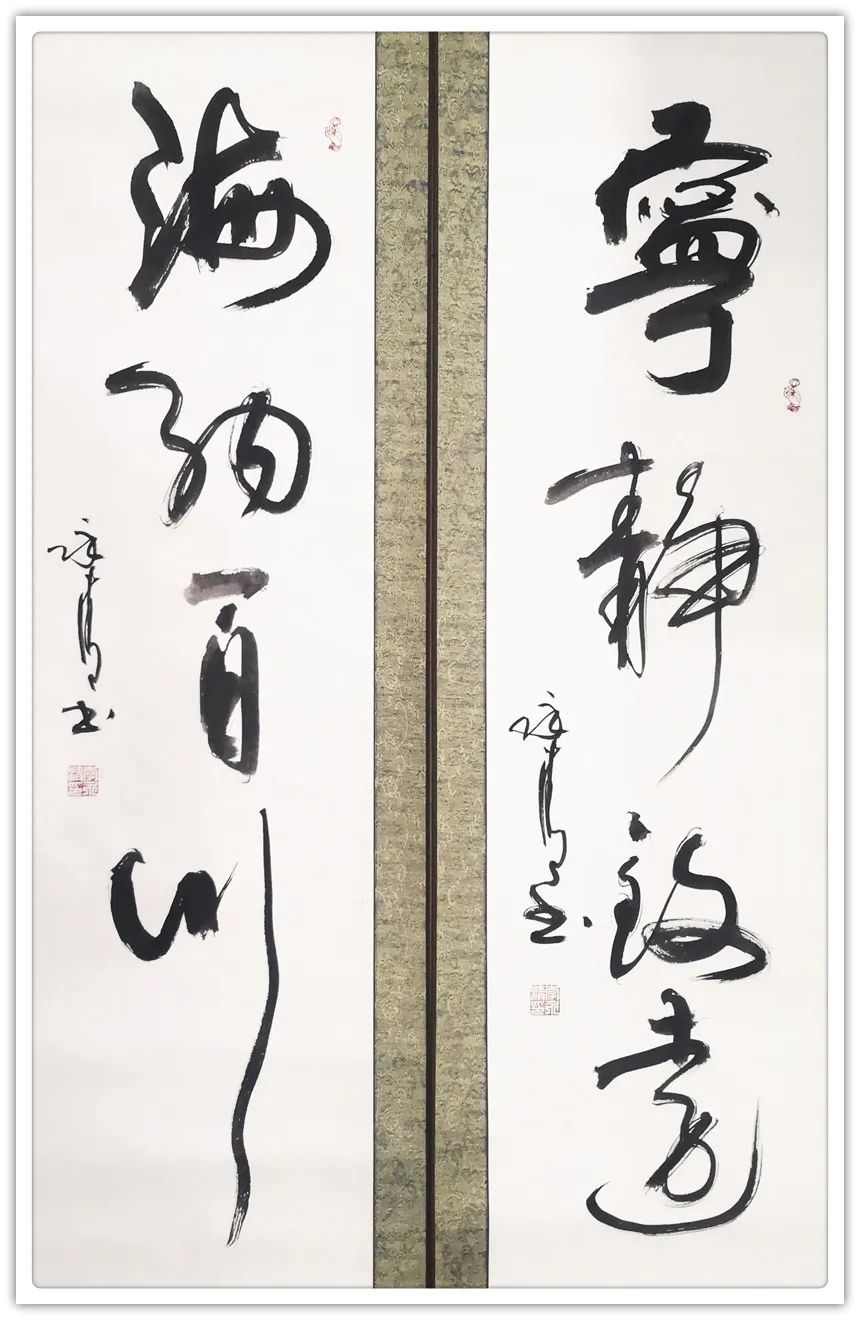 寧靜致遠
海納百川